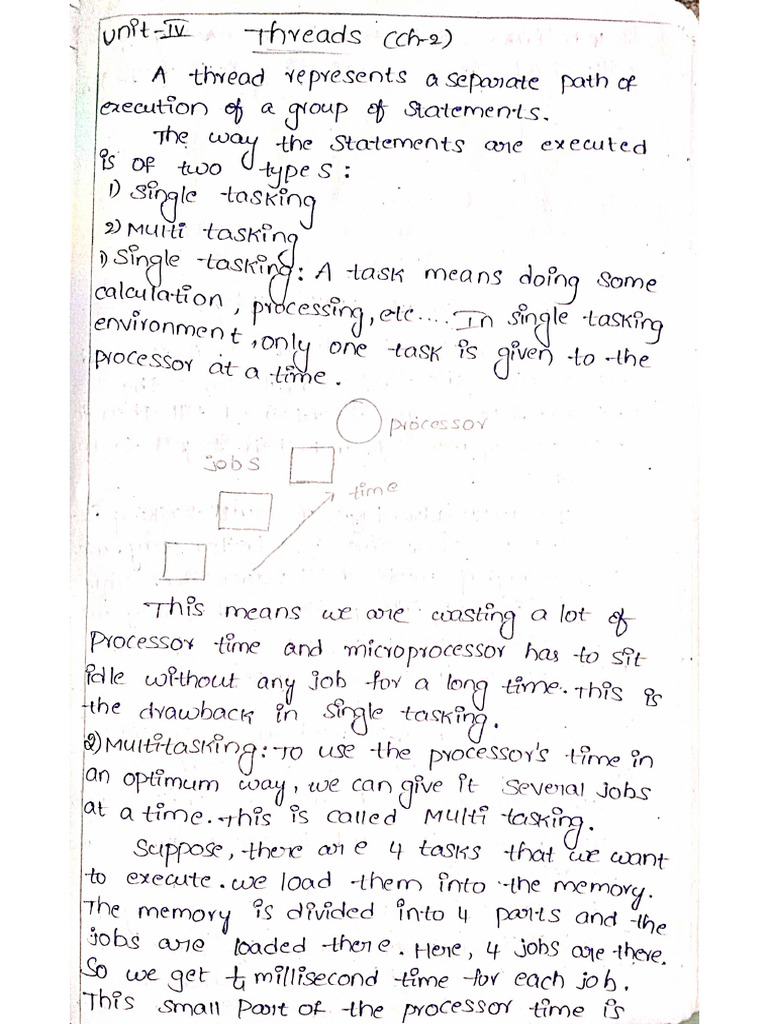 Unit-IV Threads (Ch-2)
A thread represents a separate path of
execution of a group of statements.
The way the statements are executed
is of two types:
1) Single tasking
2) Multi tasking
1) Single tasking: A task means doing some
calculation, processing, etc.... In single tasking
environment, only one task is given to the
processor at a time.
processor
jobs
time
This means we are wasting a lot of
processor time and microprocessor has to sit
idle without any job for a long time. This is
the drawback in single tasking.
2) Multitasking: To use the processor's time in
an optimum way, we can give it several jobs
at a time. This is called Multi tasking.
Suppose, there are 4 tasks that we want
to execute. we load them into the memory.
The memory is divided into 4 parts and the
jobs are loaded there. Here, 4 jobs are there.
So we get ¼ millisecond time for each job.
This small part of the processor time is